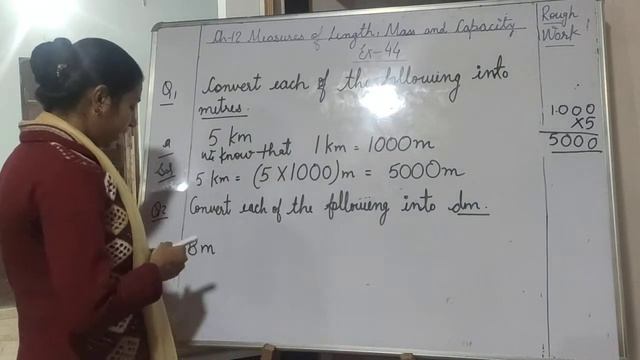 Ch-12 Measures of Length, Mass and Capacity
Ex-44
Q1 Convert each of the following into
metres.
a 5 km
we know that 1 km = 1000m
Sol 5 km = (5 X 1000) m = 5000m
Q2 Convert each of the following into dm.
8m
Rough
Work
1000
X5
5000